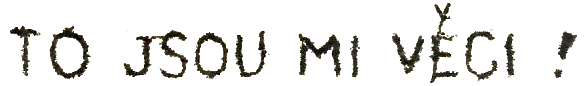 TO JSOU MI VĚCI !